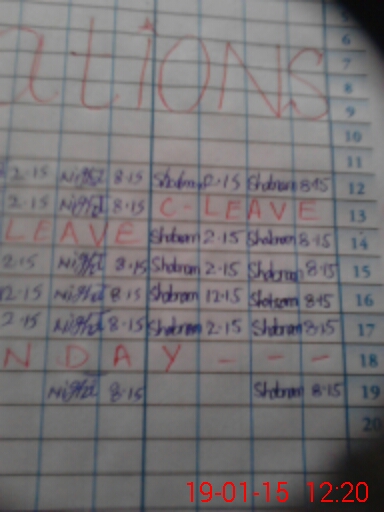 5
6
ations 7
8
9
10
11
2.15 Night 8.15 Shabnam 2.15 Shabnam 8.15 12
2.15 Night 8.15 C - LEAVE 13
LEAVE Shabnam 2.15 Shabnam 8.15 14
2.15 Night 8.15 Shabnam 2.15 Shabnam 8.15 15
12.15 Night 8.15 Shabnam 12.15 Shabnam 8.15 16
2.15 Night 8.15 Shabnam 2.15 Shabnam 8.15 17
N D A Y - - - 18
Night 8.15 Shabnam 8.15 19
20
19-01-15 12:20